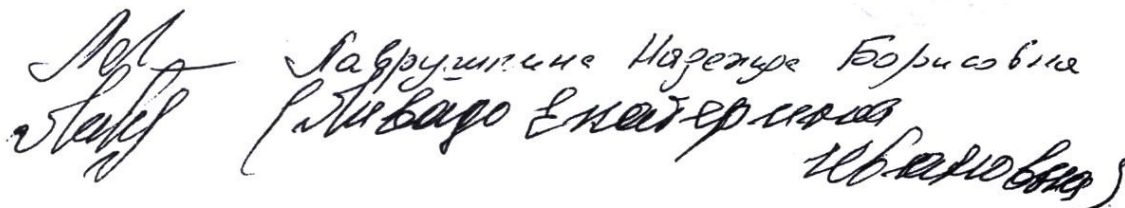 Лаврушкина Надежда Борисовна
(Ливадо Екатерина
Ивановна)